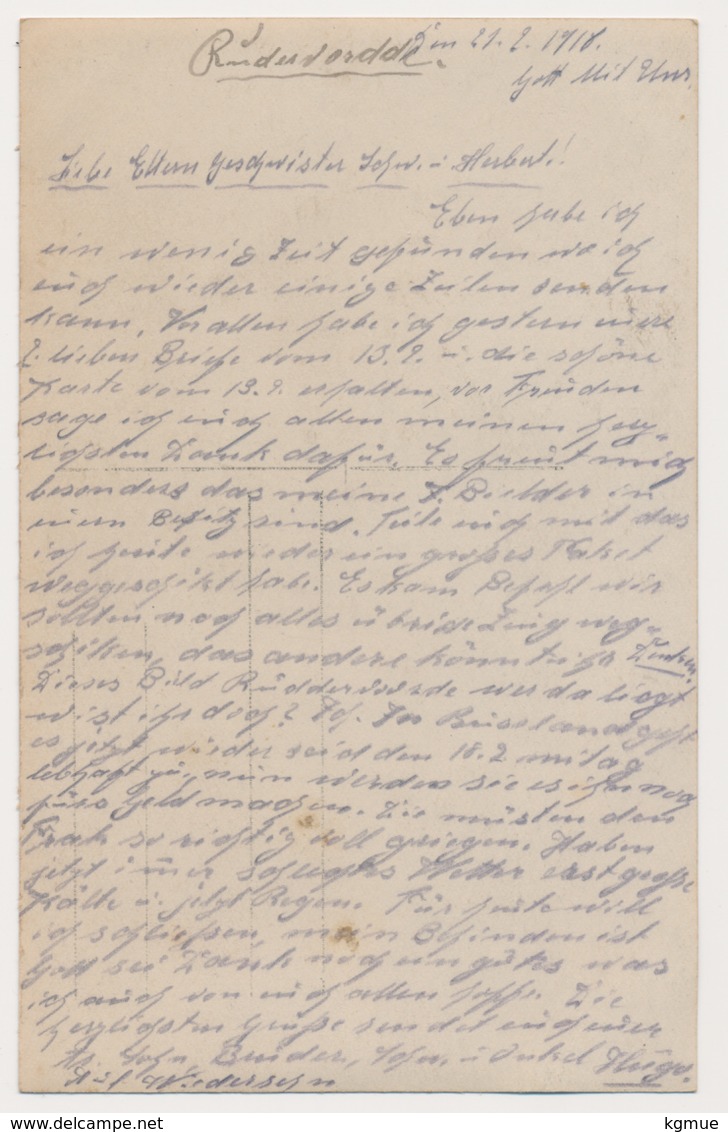 Rüdervordde.
Den 21.2.1918.
Gott Mit Uns.
Liebe Eltern Geschwister Schw. u. Herbert!
Eben habe ich
ein wenig Zeit gefunden wo ich
euch wieder einige Zeilen senden
kann. Vor allen habe ich gestern eure
2. lieben Briefe vom 13.2. u. die schöne
Karte vom 13.2. erhalten, vor Freuden
sage ich euch allen meinen herz-
lichsten Dank dafür. Es freut mich
besonders das meine Bielder in
euern Besitz sind. Teile euch mit das
ich heute wieder ein großes Paket
weggeschikt habe. Es kam Befehl wir
sollten noch alles übride Zeug weg-
schiken, das andere könnt ihr Denken.
Dieses Bild Rüddervoorde wer da liegt
wist ihr doch? In Russland geht
es jetzt wieder seid den 18.2. mitag
lebhaft zu, nun werden sie es ihr noch
fürs Geld machen. Die müsten den
Frak so richtig voll griegen. Haben
jetzt immer schlechtes Wetter erst große
Kälte u. jetzt Regen. Für heute will
ich schließen, mein Befinden ist
Gott sei Dank noch ein gutes was
ich auch von euch allen hoffe. Die
herzlichsten Grüße sendet euch euer
Sohn, Bruder, Schw. u. Onkel Hugo.
Auf Wiedersehn
kgmue